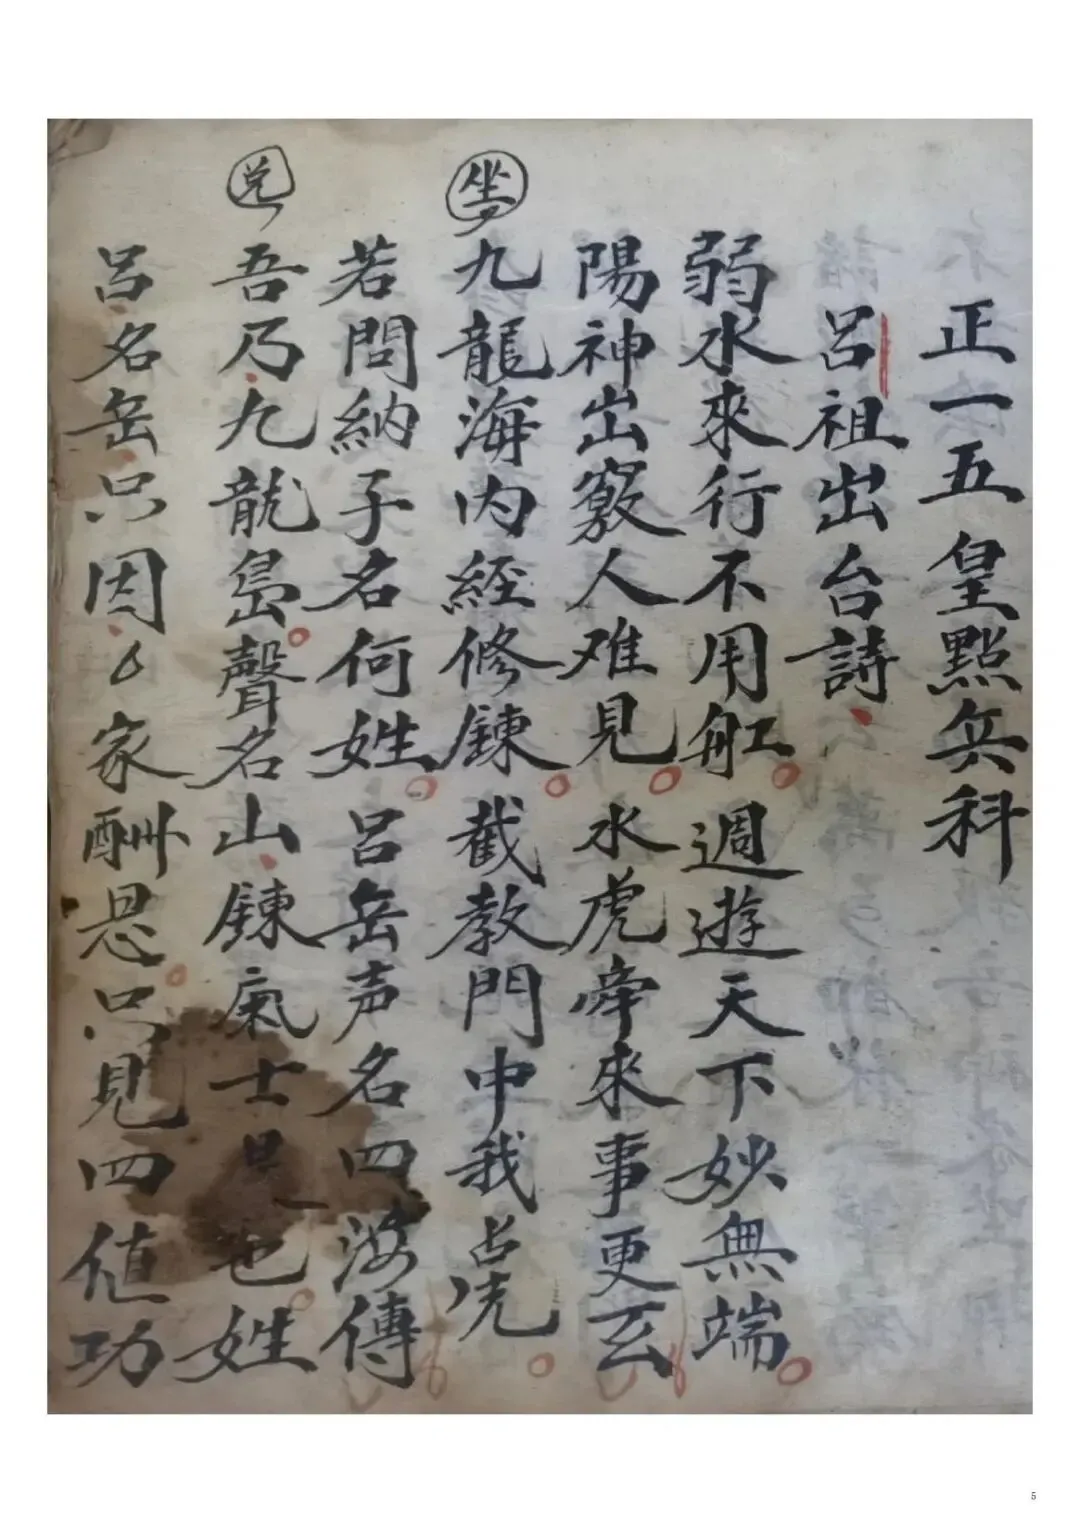 正一五皇點兵科
呂祖出台詩
弱水來行不用舡週遊天下妙無端
陽神出竅人难見水虎牵來事更玄
坐九龍海内経修鍊截教門中我占先
若問納子名何姓呂岳声名四海傳
吾乃九龍島聲名山鍊氣士是也姓
呂名岳只因家酬恩只見四值功
5